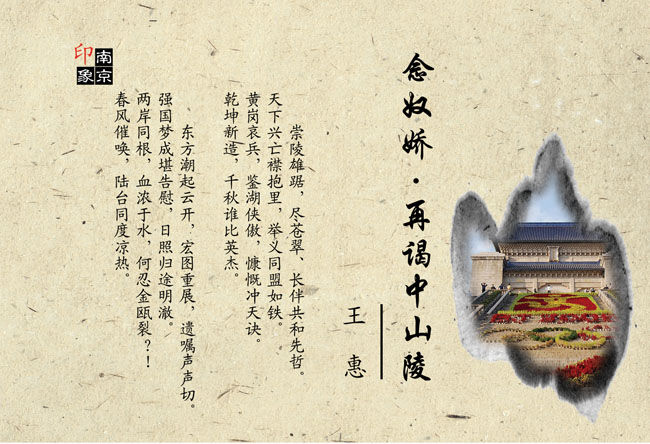 念奴娇·再谒中山陵
王惠
崇陵雄踞，尽苍翠、长伴共和先哲。
天下兴亡襟抱里，举义同盟如铁。
黄岗哀兵，鉴湖侠傲，慷慨冲天诀。
乾坤新造，千秋谁比英杰。
东方潮起云开，宏图重展，遗嘱声声切。
强国梦成堪告慰，日照归途明澈。
两岸同根，血浓于水，何忍金瓯裂？！
春风催唤，陆台同度凉热。
南京
印象